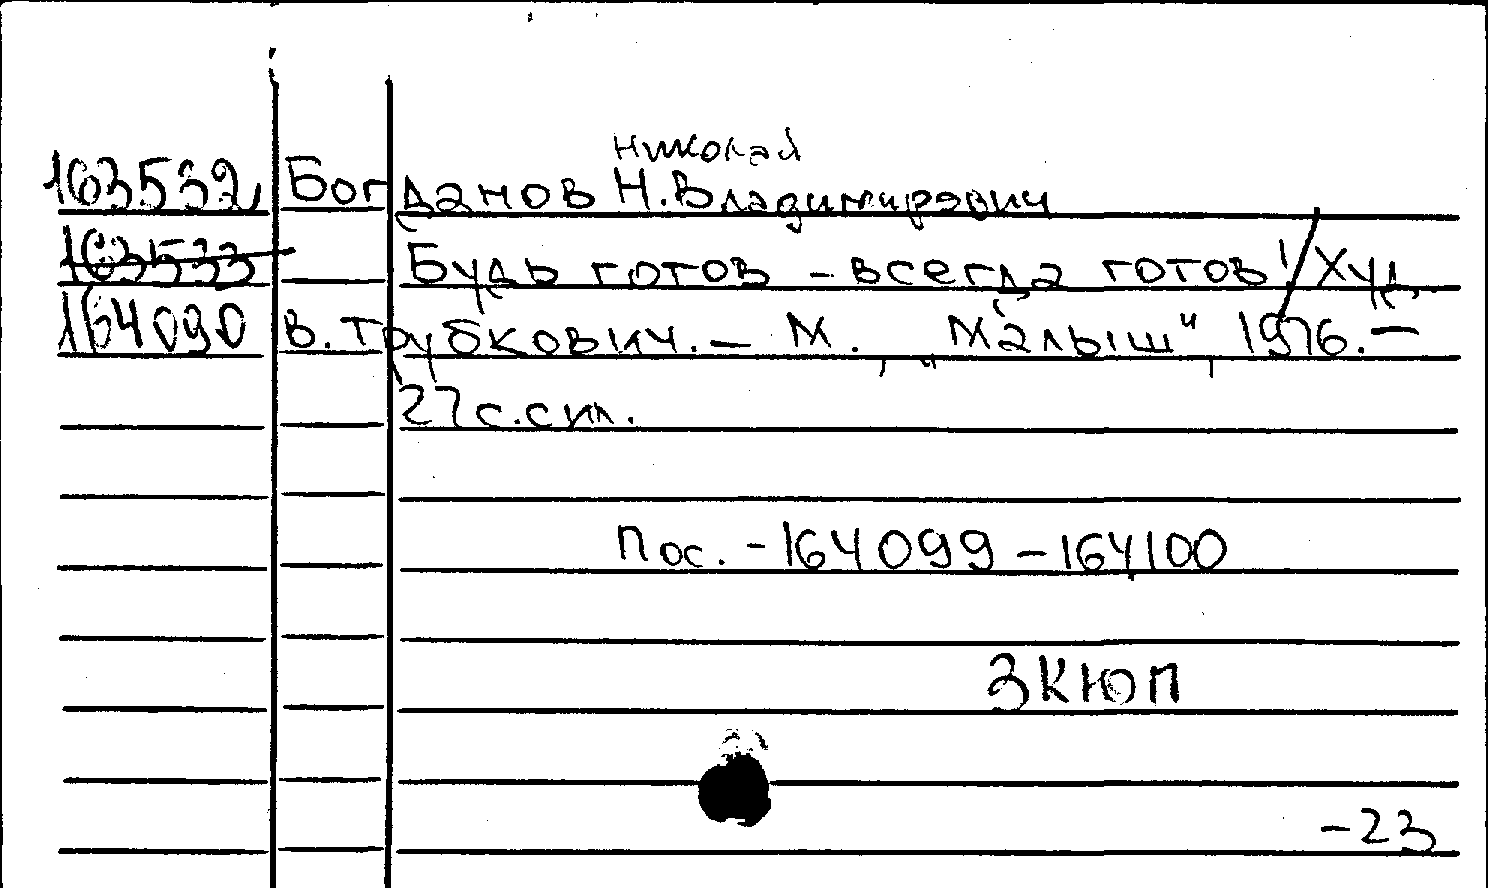 Николай
163532, Богданов Н. Владимирович
163533 Будь готов - всегда готов! / Худ.
164090 В. Трубкович. - М., „Малыш", 1976. -
27 с. с ил.
Пос. - 164099 - 164100
ЗКЮП
- 23